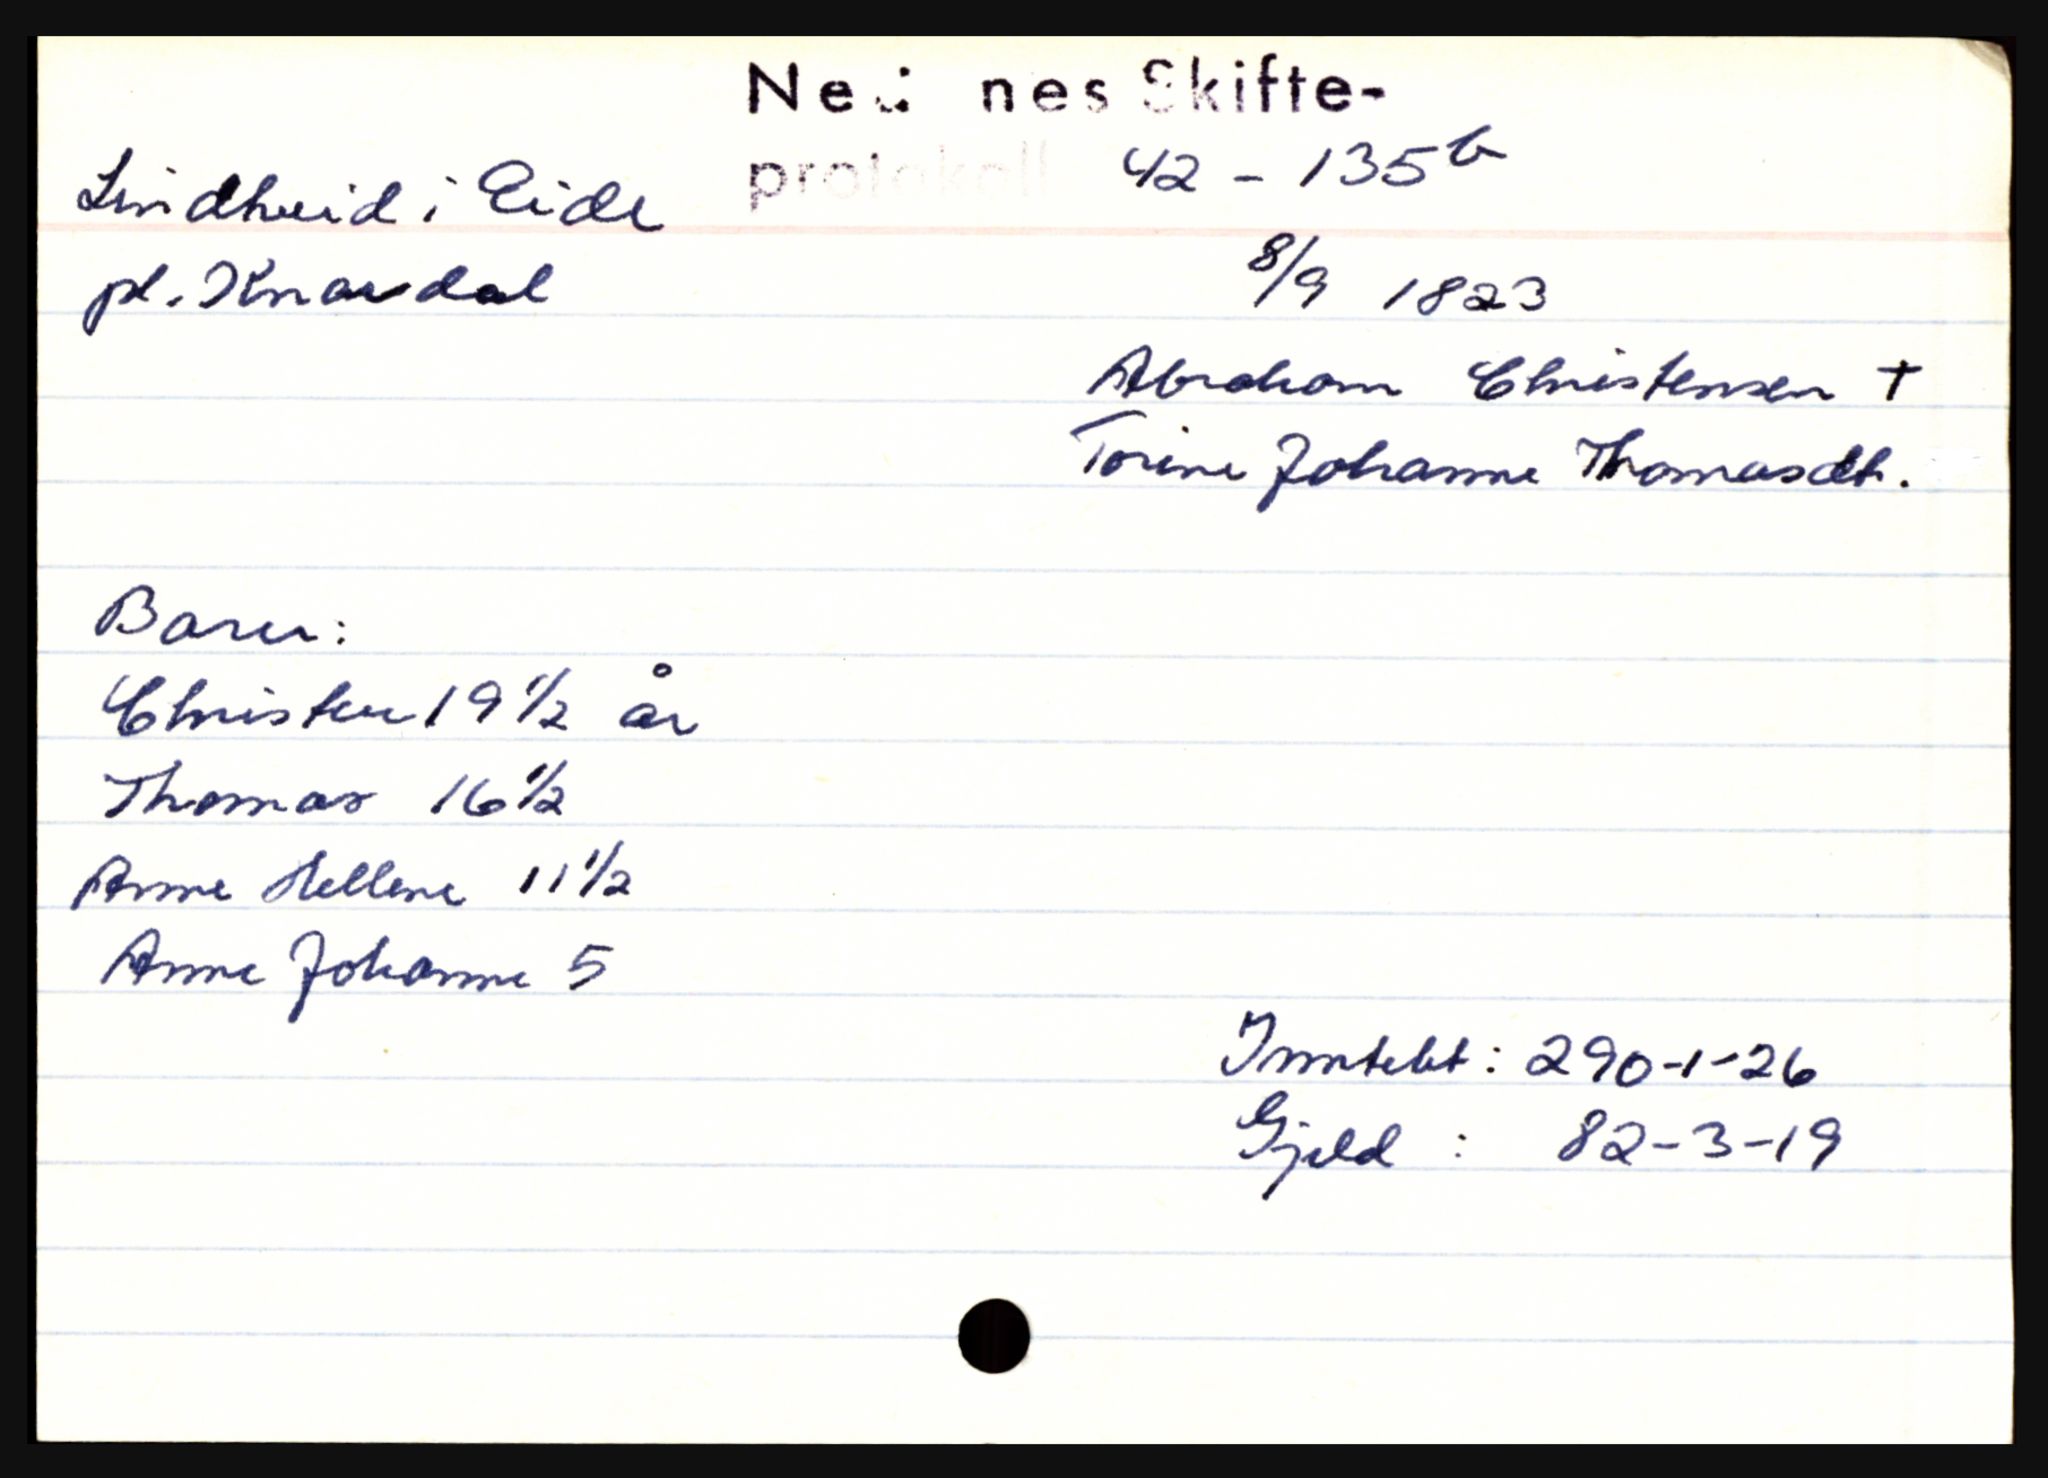 Nedenes Skifte-
protokoll 42 - 135b
Lindheid i Eide
pl. Knardal
8/9 1823
Abraham Christensen +
Torine Johanne Thomasdt.
Barn:
Christen 19 1/2 år
Thomas 16 1/2
Anne Hellene 11 1/2
Anne Johanne 5
Inntekt: 290-1-26
Gjeld : 82-3-19